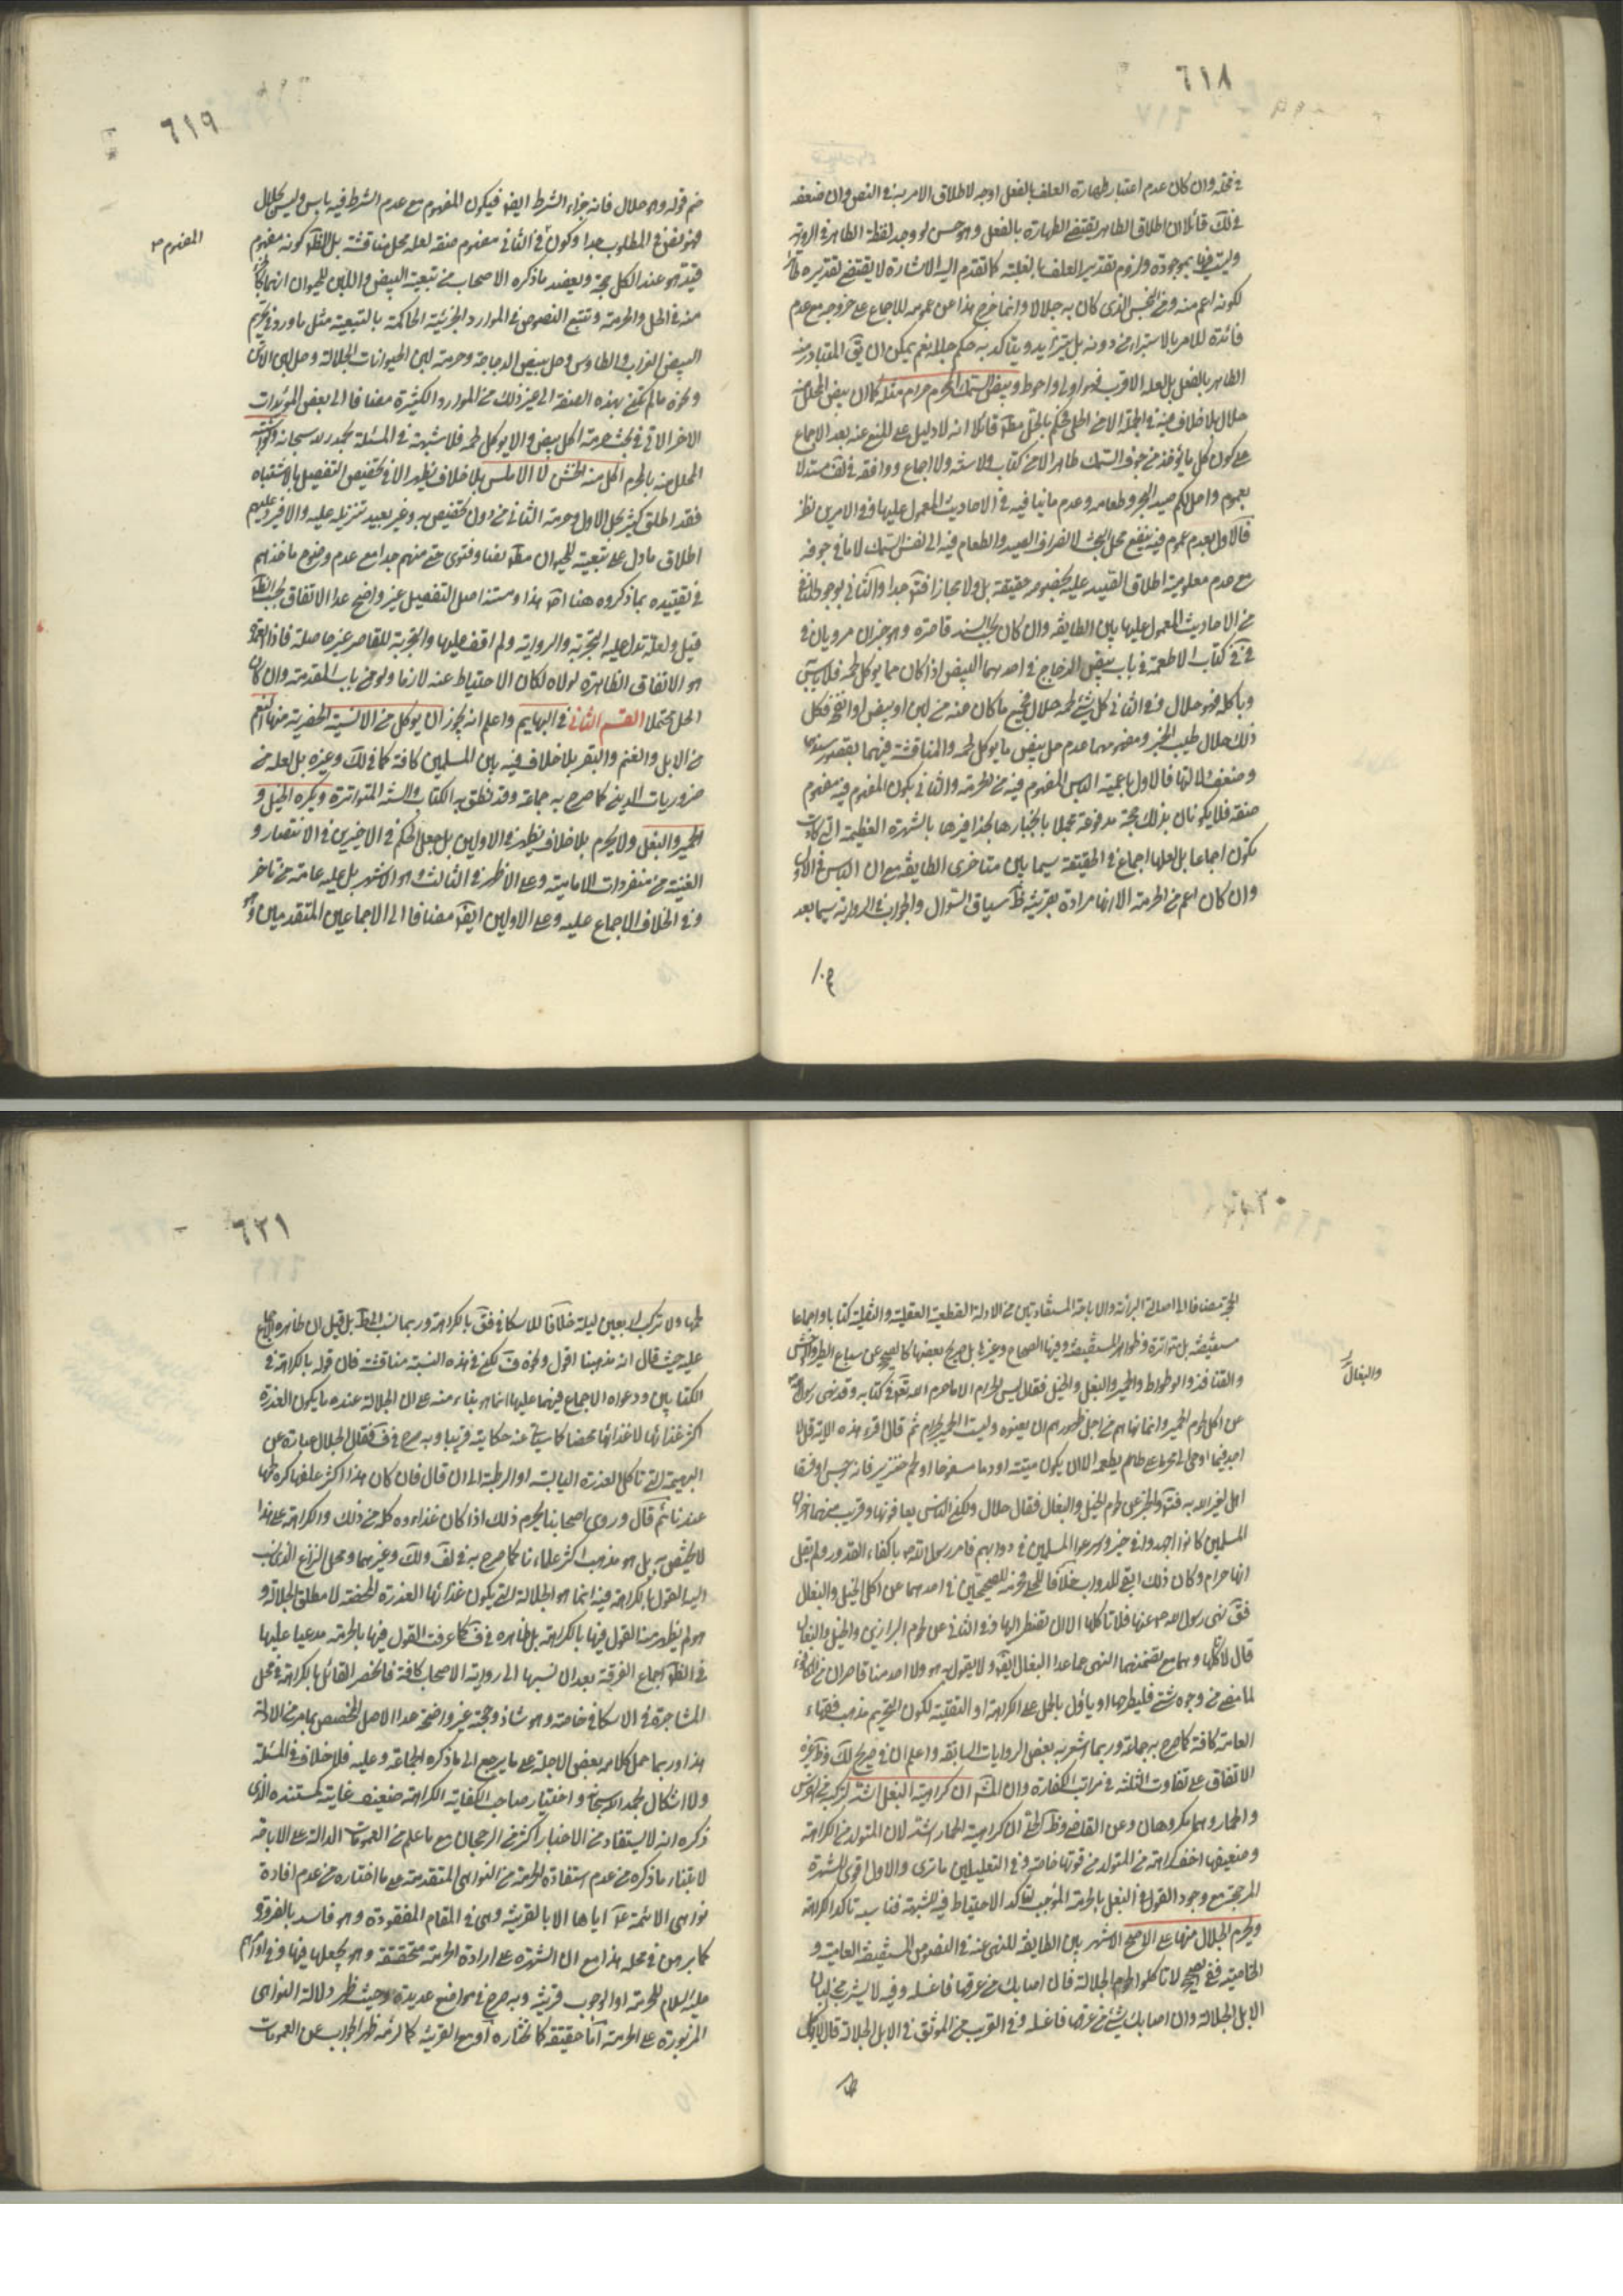 ٦١٨
في محله وان كان عدم اعتبار طهارة العلف بالفعل اوجه لاطلاق الامر به في النص وان ضعفه
في لك قائلا ان اطلاق الطاهر يقتضي الطهارة بالفعل وهو حسن لو وجد لفظة الطاهر في الرواية
وليست فيها بموجودة ولزوم تقدير العلف بالعلية كما تقدم اليه الاشارة لا يقتضي تقديره طاهرا
لكونه اعم منه ومن النجس الذي كان به جلالا وانما خرج هذا عن عمومه للاجماع على خروجه مع عدم
فائدة للامر بالاستبراء من دونه بل يتزايد ويتأكد به حكم جلله نعم يمكن ان يق المتبادر منه
الطاهر بالفعل بل لعله الاقرب فهو اولى واحوط وبيض السمك المحرم حرام مثله كما ان بيض المحلل منه
حلال بلا خلاف فيه في الجملة الا من الحلي فحكم بالحل مط قائلا انه لا دليل على المنع عنه بعد الاجماع
على كون كل ما يؤخذ من جوف السمك طاهرا لا من كتاب ولا سنة ولا اجماع ووافقه في لف مستدلا
بعموم واحل لكم صيد البحر وطعامه وعدم ما ينافيه في الاحاديث المعمول عليها وفي الامرين نظر
فالاول بعدم عموم فيه ينفع محل البحث لانصراف الصيد والطعام فيه الى نفس السمك لا ما في جوفه
مع عدم معلومية اطلاق الصيد عليه بخصوصه حقيقة بل ولا مجازا فت جدا والثاني بوجود المنافي
من الاحاديث المعمول عليها بين الطايفة وان كان بحسب السند قاصرة وهو خبران مرويان في
في كتاب الاطعمة في باب بيض الدجاج في احدهما البيض اذا كان مما يوكل لحمه فلا باس به
وباكله فهو حلال وفي الثاني كل شيء لحمه حلال فجميع ما كان منه من لبن او بيض او انفخة فكل
ذلك حلال طيب الخبر ومفهومهما عدم حل بيض ما لا يوكل لحمه والمناقشة فيهما بقصور سندهما
وضعف دلالتها فالاول باعمية الباس المفهوم فيه من الحرمة والثاني بكون المفهوم فيه مفهوم
صفة فلا يكونان بذلك حجة مدفوعة مجملا بانجبارها بحذافيرها بالشهرة العظيمة التي كادت
تكون اجماعا بل لعلها اجماع في الحقيقة سيما بين متاخري الطايفة مع ان الباس في الاول
وان كان اعم من الحرمة الا انها مرادة بقرينة ظ سياق السؤال والجواب في الرواية سيما بعد
٦١٩
ضم قوله وهو حلال فانه جزاء الشرط ايضا فيكون المفهوم مع عدم الشرط فيه باس وليس بحلال
فهو نص في المطلوب جدا وكون في الثاني مفهوم صفة لعله محل مناقشة بل الظ كونه مفهوم
المفهوم
قيد هو عند الكل حجة ويعضد ما ذكره الاصحاب من تبعية البيض واللبن للحيوان انهما كالجزء
منه في الحل والحرمة وتتبع النصوص في الموارد الجزئية الحاكمة بالتبعية مثل ما ورد في تحريم
البيض الغراب والطاوس وحل بيض الدجاجة وحرمة لبن الحيوانات الجلالة وحل لبن الاتن
ونحوه مالم تكن بهذه الصفة الى غير ذلك من الموارد الكثيرة مضافا الى بعض المؤيدات
الاخر الاتي في بحث حرمة اكل بيض ما لا يوكل لحمه فلا شبهة في المسئلة بحمد الله سبحانه ولو اشتبه
المحلل منه بالمحرم اكل منه الخشن لا الاملس بلا خلاف يظهر الا في تخصيص التفصيل بالاشتباه
فقد اطلق كثير حل الاول وحرمة الثاني من دون تخصيص به وغير بعيد تنزيله عليه والا فيرد عليهم
اطلاق ما دل على تبعية للحيوان مط نصا وفتوى حتى منهم جدا مع عدم وضوح ماخذهم
في تقييده بما ذكروه هنا اص هذا ومستند اصل التفصيل غير واضح عدا الاتفاق بحسب الظ
قيل ولعله تدل عليه التجربة والرواية ولم اقف عليها والتجربة للقاصر غير حاصلة فاذا العمدة
هو الاتفاق الظاهرة لولاه لكان الاحتياط عنه لازما ولو من باب المقدمة وان كان
الحل محتملا القسم الثاني في البهايم واعلم انه يجوز ان يوكل من الانسية الحضرية منها النعم
من الابل والغنم والبقر بلا خلاف فيه بين المسلمين كافة كما في لك وغيره بل لعله من
ضروريات الدين كما صرح به جماعة وقد نطق به الكتاب والسنة المتواترة ويكره الخيل و
الحمير والبغل ولا يحرم بلا خلاف يظهر في الاولين بل جعل الحكم في الاخيرين في الانتصار و
الغنية من منفردات الامامية وعلى الاظهر في الثالث وهو الاشهر بل عليه عامة من تاخر
وفي الخلاف الاجماع عليه وعلى الاولين ايض مضافا الى الاجماعين المتقدمين وهو
الحجة مضافا الى اصالة البرائة والاباحة المستفادتين من الادلة القطعية العقلية والنقلية كتابا واجماعا
مستفيضة بل متواترة وظواهر المستفيضة وفيها الصحاح وغيرها بل صريح بعضها كالصحيح عن سباع الطير والوحش
والبغال
والقنافذ والوطواط والحمير والبغل والخيل فقال ليس الحرام الا ما حرم الله تعالى في كتابه وقد نهى رسول الله
عن اكل لحوم الحمير وانما نهاهم من اجل ظهورهم ان يفنوه وليست الحمير بحرام ثم قال اقرء هذه الاية قل لا
اجد فيما اوحي الي محرما على طاعم يطعمه الا ان يكون ميتة او دما مسفوحا او لحم خنزير فانه رجس او فسقا
اهل لغير الله به فت والخبر عن لحوم الخيل والبغال فقال حلال ولكن الناس يعافونها وقريب منهما اخر ان
المسلمين كانوا اجهدوا في خيبر واسرع المسلمين في دوابهم فامر رسول الله ص باكفاء القدور ولم يقل
انها حرام وكان ذلك ابقاء للدواب خلافا للحلبي فحرمه للصحيحين في احدهما عن اكل الخيل والبغال
فق نهى رسول الله ص عنها فلا تاكلها الا ان تضطر اليها وفي الثاني عن لحوم البراذين والخيل والبغال
قال لا تاكلها وهما مع تضمنهما النهي عما عدا البغال ايض ولا يقول به هو ولا احد منا قاصران من المكافئة
لما مضى من وجوه شتى فليطرحا او ياول بالحمل على الكراهة او التقية لكون التحريم مذهب فقهاء
العامة كافة كما صرح به جماعة وربما اشعر به بعض الروايات السابقة واعلم ان في صريح لك وظ غيره
الاتفاق على تفاوت الثلثة في مراتب الكفارة وان المش ان كراهية البغل اشد لتركبه من الفرس
والحمار وهما مكروهان وعن القاضي وظ الحلي ان كراهية الحمار اشد لان المتولد من الكراهة
وضعيفها اخف كراهة من المتولد من قوتها خاصة وفي التعليلين ما ترى والاول اقوى للشهرة
المرجحة مع وجود القول في البغل بالحرمة الموجب لتاكد الاحتياط فيه للشبهة فناسبه تاكد الكراهة
ويحرم الجلال منها على الاصح الاشهر بين الطايفة للنهي عنه في النصوص المستفيضة العامية و
الخاصية ففي الصحيح لا تاكلوا لحوم الجلالة فان اصابك من عرقها فاغسله وفيه لا يشرب من البان
الابل الجلالة وان اصابك شيء من عرقها فاغسله وفي القريب من الموثق في الابل الجلالة قال لا يوكل
٦٢١
لحمها ولا تركب اربعين ليلة خلافا للاسكافي فق بالكراهة وربما نسب الى ط بل قيل ان ظاهره الاجماع
عليه حيث قال انه مذهبنا اقول ونحوه ف لكن في هذه النسبة مناقشة فان قوله بالكراهة في
الكتابين ودعواه الاجماع فيهما عليها انما هو بناء منه على ان الجلالة عنده ما يكون العذرة
اكثر غذائها لا غذائها محضا كما سياتي عنه حكايته قريبا وبه صرح في ف فقال الجلال عبارة عن
البهيمة التي تاكل العذرة اليابسة او الرطبة الى ان قال فان كان هذا اكثر علفها كره لحمها
عندنا ثم قال وروى اصحابنا تحريم ذلك اذا كان غذاءه كله من ذلك والكراهة على هذا
لا يختص به بل هو مذهب اكثر علمائنا كما صرح به في لف ولك وغيرهما ومحل النزاع الذي نسب
اليه القول بالكراهة فيه انما هو الجلالة التي يكون غذائها العذرة المحضة لا مطلق الجلالة و
هو لم يظهر منه القول فيها بالكراهة بل ظاهره في ف كما عرفت القول فيها بالحرمة مدعيا عليها
في الظ اجماع الفرقة بعد ان نسبها الى رواية الاصحاب كافة فانحصر القائل بالكراهة في محل
المشاجرة في الاسكافي خاصة وهو شاذ وحجته غير واضحة عدا الاصل المخصص بما مر من الادلة
هذا وربما حمل كلامه بعض الاجلة على ما يرجع الى ما ذكره الجماعة وعليه فلا خلاف في المسئلة
ولا اشكال بحمد الله سبحانه واختيار صاحب الكفاية الكراهة ضعيف غايته كمستنده الذي
ذكره انه لا يستفاد من الاخبار اكثر من الرجحان مع ما علم من العمومات الدالة على الاباحة
لابتناء ما ذكره من عدم استفادة الحرمة من النواهي المتقدمة على ما اختاره من عدم افادة
نواهي الائمة ع اياها الا بالقرينة وهي في المقام المفقودة وهو فاسد بالضرورة
كما برهن في محله هذا مع ان الشهرة على ارادة الحرمة متحققة وهو يجعلها فيها وفي اوامرهم
عليه السلام للحرمة او الوجوب قرينة وبه صرح في مواضع عديدة وحيث ظهر دلالة النواهي
المزبورة على الحرمة اما حقيقة كما نختاره او مع القرينة كما لزمه ظهر الجواب عن العمومات